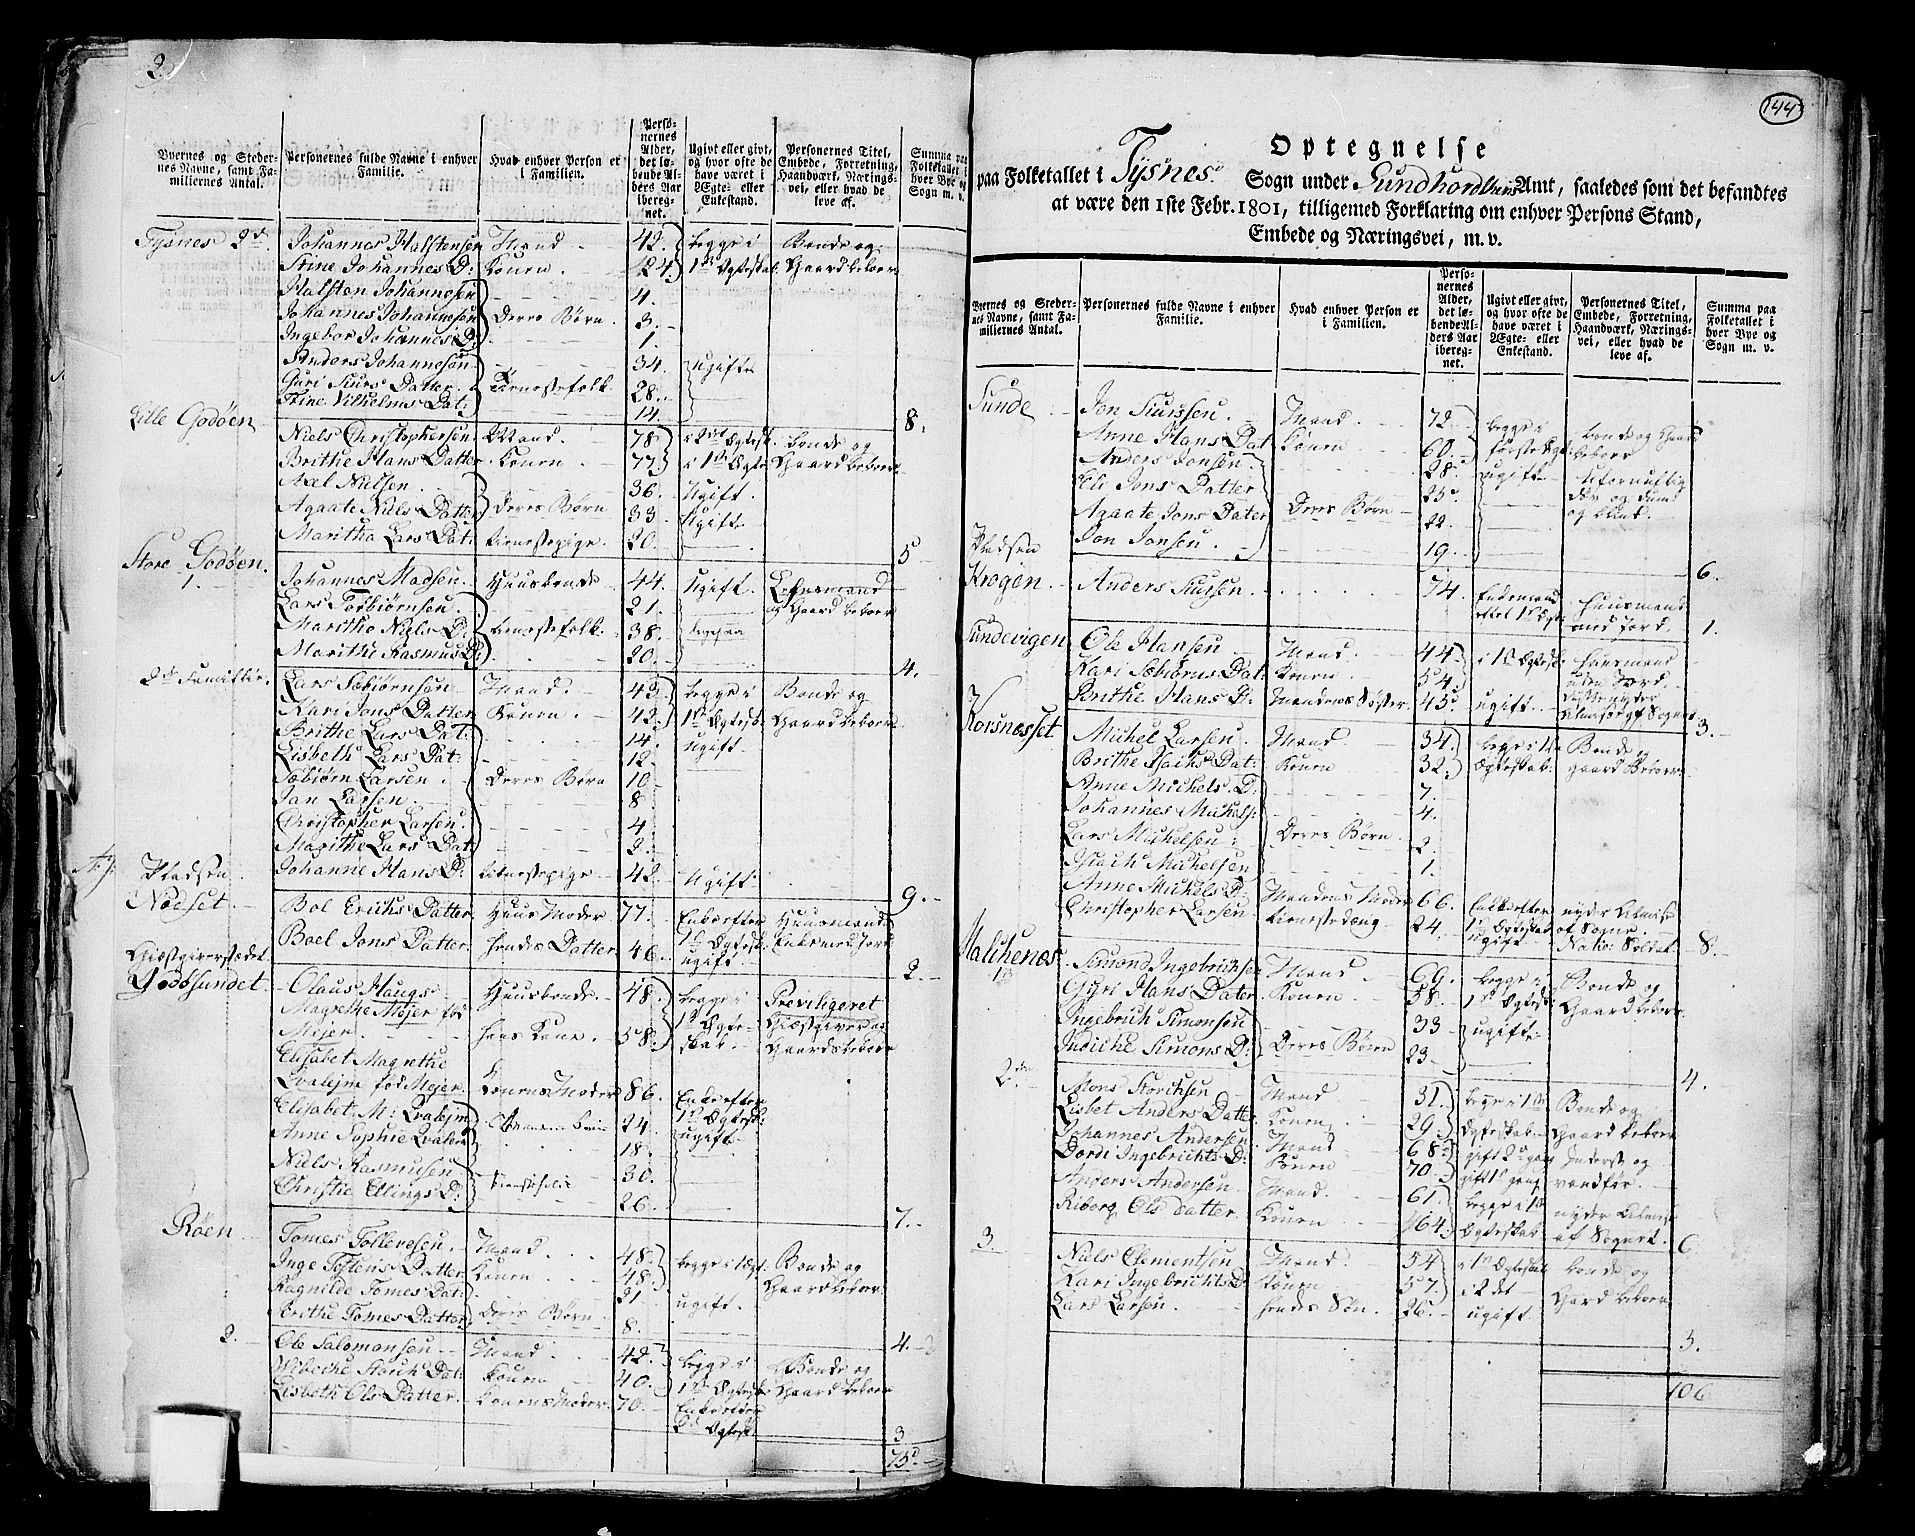 2.
Byernes og Steder-
nes Navne, samt Fa-
miliernes Antal.
Personernes fulde Navne i enhver
Familie.
Hvad enhver Person er
i Familien.
Perso-
nernes
Alder,
det lø-
bende Al-
ders Aar
ibereg-
net.
Ugivt eller givt,
og hvor ofte de
have været i
Ægte- eller
Enkestand.
Personernes Titel,
Embede, Forretning,
Haandværk, Nærings-
vei, eller hvad de
leve af.
Summa paa
Folketallet i
hver Bye og
Sogn m. v.
Tysnes 2d. Johannes Halstensen Mand 42. begge i Bonde og
Stine Johannes D: Konen 24. 1ste Ægteskab. Gaardbeboer
Halsten Johannesen 4.
Johannes Johannesen Deres Børn 3.
Ingebor Johannes D: 1.
Anders Johannesen 34. Ugifte
Guri Siurs Datter Tienestefolk 28.
Stine Vilhelms Dat: 14 8.
Lille Godøen Niels Christophersen Mand 78. i 2det Ægtesk. Bonde og
Brithe Hans Datter Konen 77. i 1ste Ægte Gaardbeboer
Axel Nielsen 36. Ugift.
Agaate Niels Datter Deres Børn 33. Ugift
Maritha Lars Dat: tienestepige 20. 5
Store Godøen. 1. Johannes Madsen Huusbonde 44. Ugift. Lehnsmand
Lars Torbiørnsen 21. og Gaardbeboer
Maritho Niels D. tienestefolk 38. ligesaa
Marithe Rasmus D: 20. 4.
2de Familie. Lars Tobiørnsen Mand 43. begge i Bonde og
Kari Jons Datter Konen 42. 1ste Ægtesk Gaardbeboer
Brithe Lars Dat. 14. ugift.
Lisbeth Lars Dat: 12.
Tobiørn Larsen Deres Børn 10
Jan Larsen 8.
Christopher Larsen 4.
Marithe Lars Dat: 2.
Johanne Hans D: tienestepige 42. Ugift 9.
Pladsen
Nodset Bol Erichs Datter Huus Moder 77. Enke efter Huusmands
Boel Jons Datter. hendes Datter 46. 1ste Ægtesk. Enke med Jord
ugift. 2.
Giæstgiverstædet
Godøsundet Claus Haugs Huusbonde 48. begge i Previligeret
Magrethe Mejer fød 1ste Ægte- Giæstgiver og
Mejer hans Kone. 58. skab Gaardbeboer
Elisabet Magrethe
Qvalejm fød Mejer. Konens Moder 86. Enke efter
Elisabet M: Qvalejm 24. 1ste Ægtesk:
Anne Sophie Qvalem 18. ugift
Niels Rasmusen 30.
Christie Ellings D. 26. 7.
Røen Tomes Tollevsen Mand 48. begge i 1 Ægt. Bonde og
Inge Tostens Datter Konen 48. Gaardbeboer
Ragnilde Tomes Dat: 21 ugift.
Brithe Tomes Datter Deres Børn 8. 4.
2. Ole Salomonsen Mand 42. begge i Bonde og
Wibeche Storch Dat. Konen 40. 1ste Ægtesk Gaardbeboer
Lisbeth Ols Datter. Konens Moder 70. Enke efter
2d Ægtesk. 3
75
144
Optegnelse
paa Folketallet i Tysnes Sogn under Sundhordlehns Amt, saaledes som det befandtes
at være den 1ste Febr. 1801, tilligemed Forklaring om enhver Persons Stand,
Embede og Næringsvei, m. v.
Byernes og Steder-
nes Navne, samt Fa-
miliernes Antal.
Personernes fulde Navne i enhver
Familie.
Hvad enhver Person er
i Familien.
Perso-
nernes
Alder,
det lø-
bende Al-
ders Aar
ibereg-
net.
Ugivt eller givt,
og hvor ofte de
have været i
Ægte- eller
Enkestand.
Personernes Titel,
Embede, Forretning,
Haandværk, Nærings-
vei, eller hvad de
leve af.
Summa paa
Folketallet i
hver Bye og
Sogn m. v.
Sunde Jon Siurssen Mand 72. begge i Bonde og Gaard
Anne Hans Dat Konen 60. første Ægt: beboer
Anders Jonsen 28. ugift ufornuftig
Eli Jons Datter 25. døv og dum
Agaate Jons Dater Deres Børn 22. og blind.
Jon Jonsen 19. 6.
Pladsen
Krogen Anders Siursen 74. Enkemand Huusmand
efter 1ste Ægt. med Jord. 1.
Sundevigen Ole Hansen Mand 44. i 1ste Ægtesk. Huusmand
Kari Tobiørns Dat. Konen 54. uden Jord.
Brithe Hans D: Mandens Søster 45. ugift nyder
Almisse af Sognet 3.
Korsnesset Michel Larsen Mand 34. begge i 1ste Bonde og
Brithe Isachs Dat: Konen 32. Ægteskab. gaard beboer
Anne Michels D. 7.
Johannes Michels: 4.
Lars Michelsen Deres Børn 2.
Isach Michelsen 1.
Anne Michels D: Mandens Moder 66. Enke efter nyder Almisse
Christopher Larsen tienestedreng 24. 1ste Ægteskab af Sogne.
ugift Natio: Soldat 8.
Halchenes 1ste Simond Ingebrichtsen Mand 69. begge i Bonde og
Gyri Hans Dater Konen 58. 1ste Ægtesk: Gaardbeboer
Ingebrich Simonsen 33 ugifte
Indiche Simons D: Deres Børn 23. 4.
2de Mons Storchsen Mand 31. begge i 1ste Bonde og
Lisbet Anders Datter Konen 29. Ægteskab Gaardbeboer
Johannes Andersen Mand 68. gift 2den gang Inderst og
Dordi Ingebrichts D: Konen 70. gift 1ste gang vandfør.
Anders Andersen Mand 61. begge i 1ste nyder Almisse
Riborg Ols datter. Konen 64. Ægteskab af Sognet. 6.
3. Niels Clementsen Mand 54 i 1ste Ægteskab Bonde og
Kari Ingebrichts D. Konen 57. i 2det Gaard beboer
Lars Larsen. hendes Søn. 26. ugift 3.
106